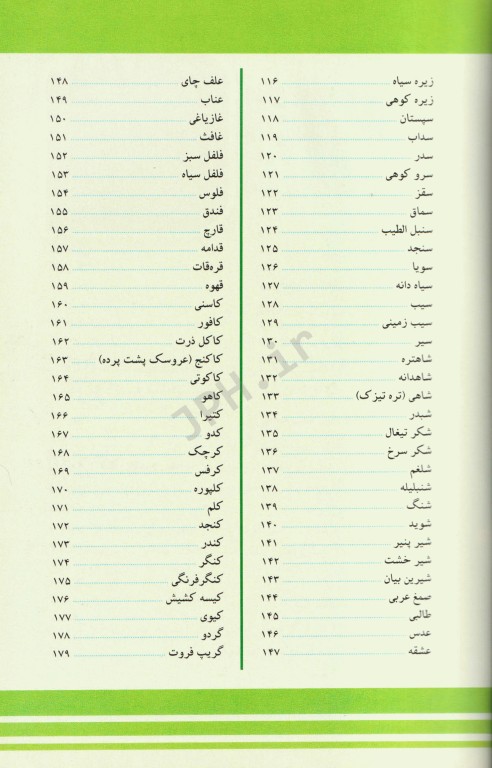 زیره سیاه ۱۱۶
زیره کوهی ۱۱۷
سپستان ۱۱۸
سداب ۱۱۹
سدر ۱۲۰
سرو کوهی ۱۲۱
سقز ۱۲۲
سماق ۱۲۳
سنبل الطیب ۱۲۴
سنجد ۱۲۵
سویا ۱۲۶
سیاه دانه ۱۲۷
سیب ۱۲۸
سیب زمینی ۱۲۹
سیر ۱۳۰
شاهتره ۱۳۱
شاهدانه ۱۳۲
شاهی (تره تیزک) ۱۳۳
شبدر ۱۳۴
شکر تیغال ۱۳۵
شکر سرخ ۱۳۶
شلغم ۱۳۷
شنبلیله ۱۳۸
شنگ ۱۳۹
شوید ۱۴۰
شیر پنیر ۱۴۱
شیر خشت ۱۴۲
شیرین بیان ۱۴۳
صمغ عربی ۱۴۴
طالبی ۱۴۵
عدس ۱۴۶
عشقه ۱۴۷
علف چای ۱۴۸
عناب ۱۴۹
غازیاغی ۱۵۰
غافث ۱۵۱
فلفل سبز ۱۵۲
فلفل سیاه ۱۵۳
فلوس ۱۵۴
فندق ۱۵۵
قارچ ۱۵۶
قدامه ۱۵۷
قره‌قات ۱۵۸
قهوه ۱۵۹
کاسنی ۱۶۰
کافور ۱۶۱
کاکل ذرت ۱۶۲
کاکنج (عروسک پشت پرده) ۱۶۳
کاکوتی ۱۶۴
کاهو ۱۶۵
کتیرا ۱۶۶
کدو ۱۶۷
کرچک ۱۶۸
کرفس ۱۶۹
کلپوره ۱۷۰
کلم ۱۷۱
کنجد ۱۷۲
کندر ۱۷۳
کنگر ۱۷۴
کنگرفرنگی ۱۷۵
کیسه کشیش ۱۷۶
کیوی ۱۷۷
گردو ۱۷۸
گریپ فروت ۱۷۹
JPH.ir